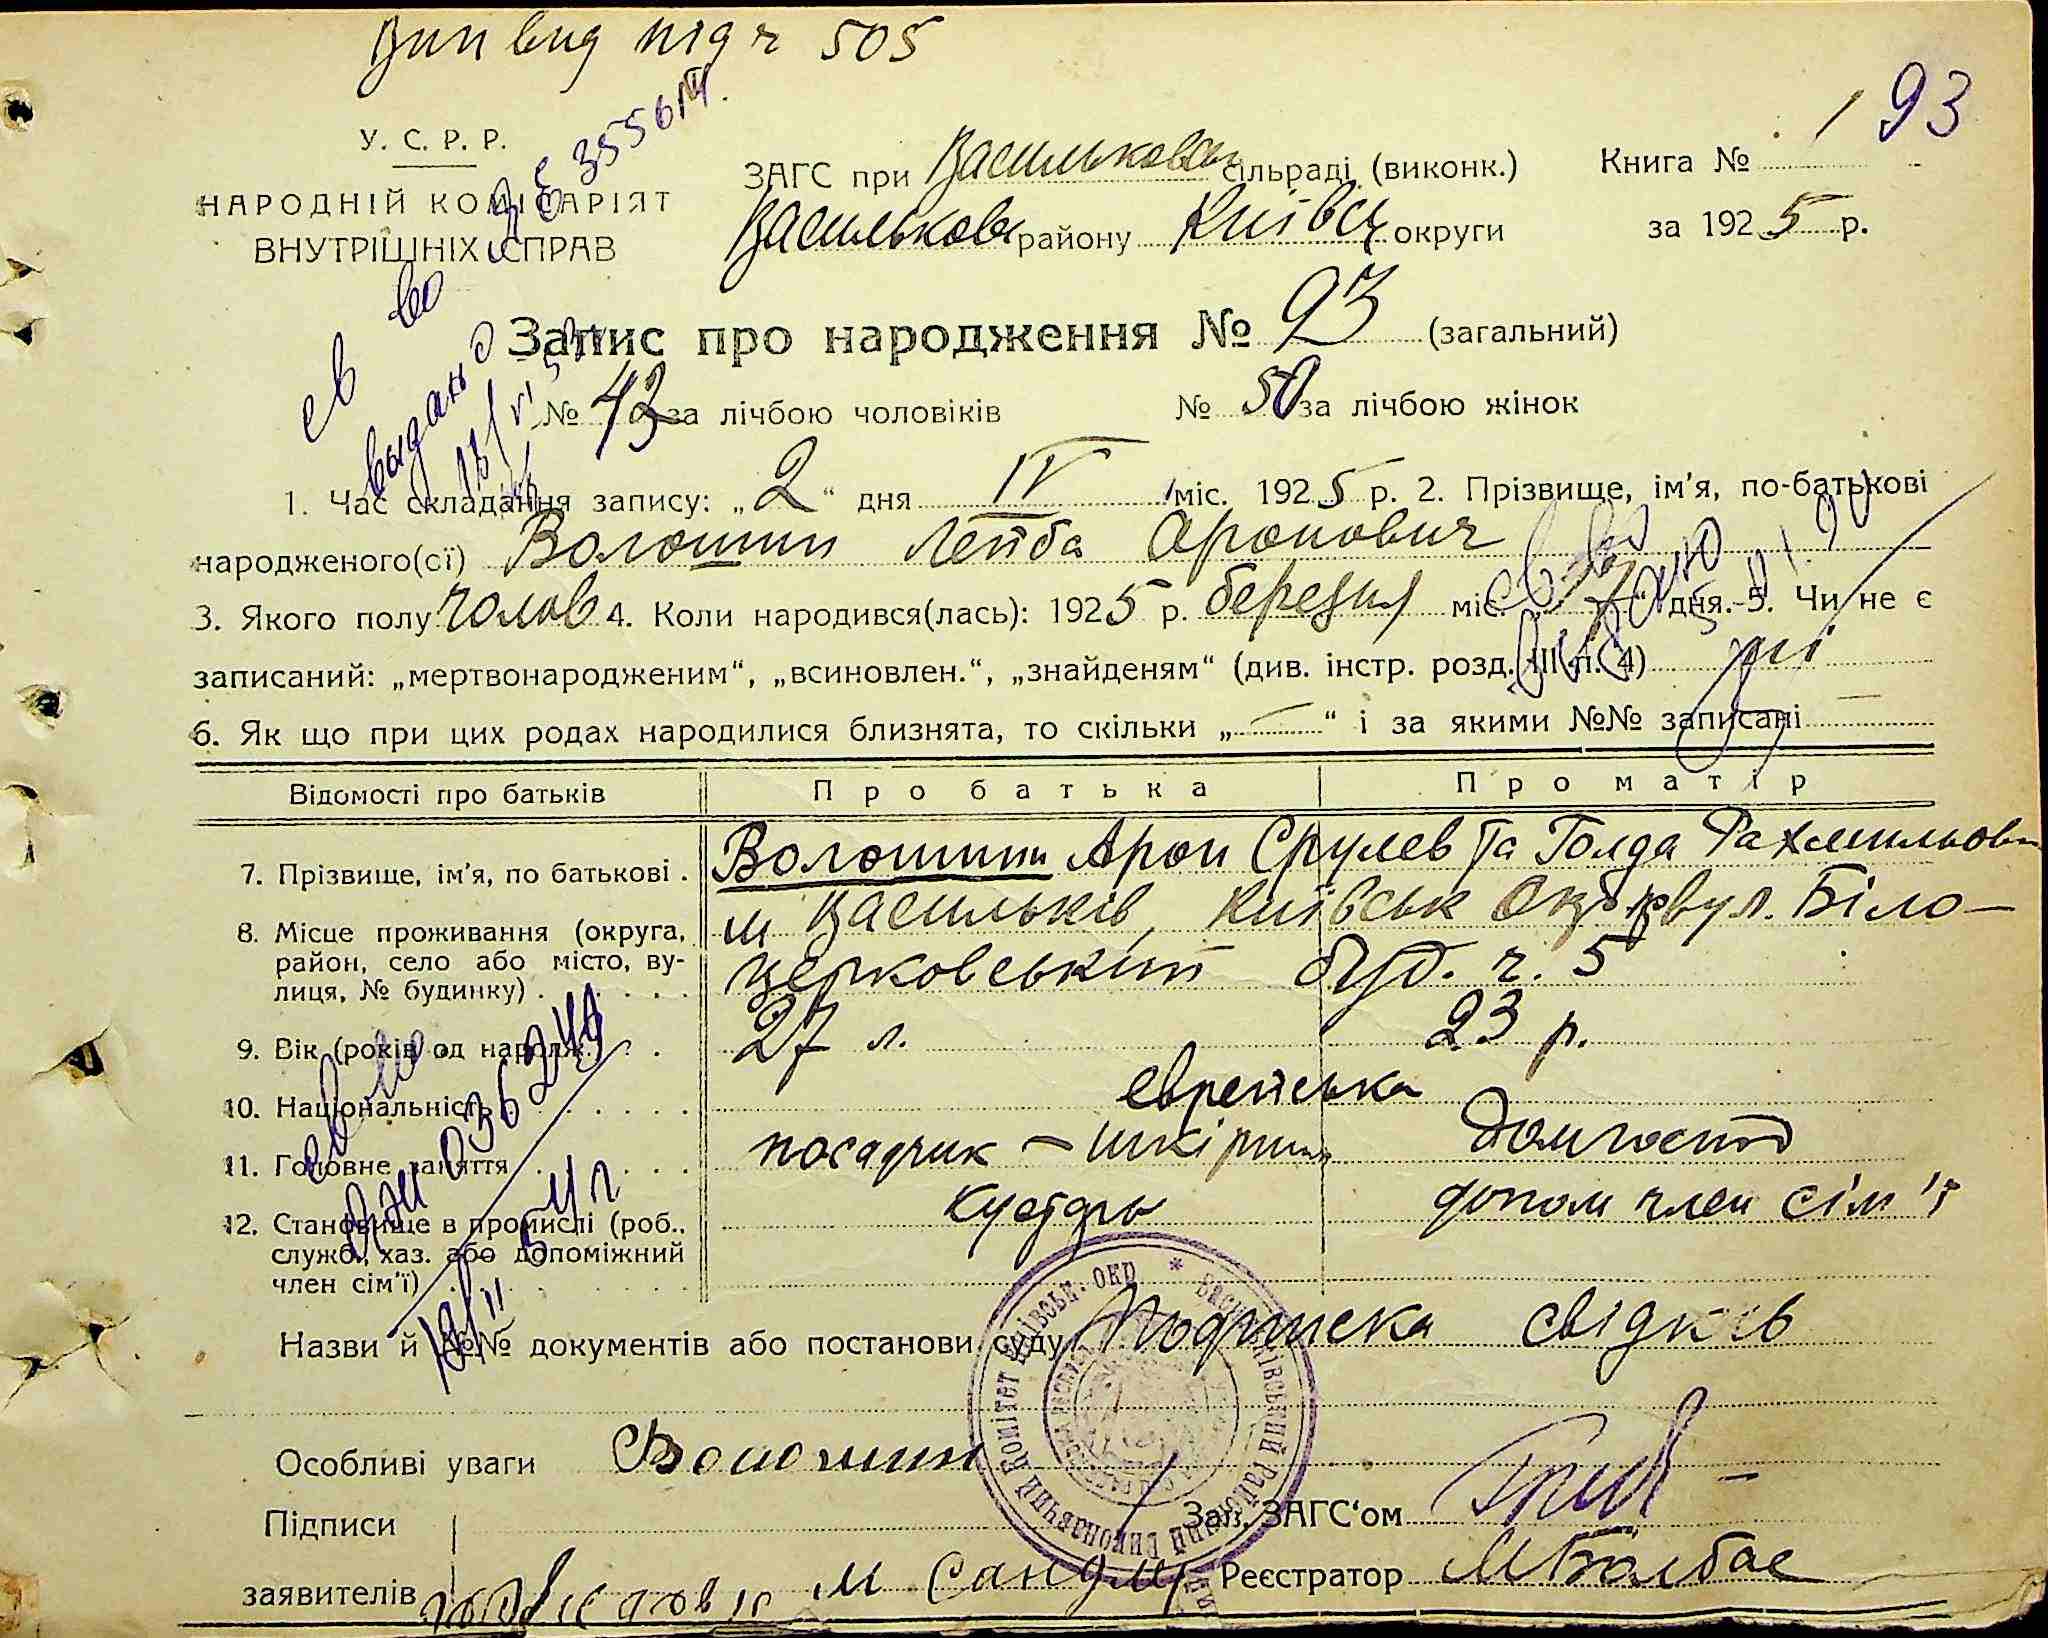 Вип вид під ч 505
1 93
У. С. Р. Р.
НАРОДНІЙ КОМІСАРІЯТ
ВНУТРІШНІХ СПРАВ
ЗАГС при Васильковськ сільраді (виконк.) Книга №
Васильковськ району Київськ округи за 1925 р.
Запис про народження № 93 (загальний)
№ 43 за лічбою чоловіків № 50 за лічбою жінок
1. Час складання запису: „2“ дня IV міс. 1925 р. 2. Прізвище, ім'я, по-батькові
народженого(сї) Волошин Лейба Аронович
3. Якого полу чолов 4. Коли народився(лась): 1925 р. березня міс. 17 дня.-5. Чи не є
записаний: „мертвонародженим“, „всиновлен.“, „знайденям“ (див. інстр. розд. III п. 4) ні
6. Як що при цих родах народилися близнята, то скільки „—“ і за якими №№ записані —
Відомості про батьків Про батька Про матір
7. Прізвище, ім'я, по батькові . Волошини Арон Срулев та Голда Рахмильовн
8. Місце проживання (округа, район, село або місто, вулиця, № будинку) . м Васильків, Київськ Окр вул. Біло-
церковський буд. ч. 5
9. Вік (років од народж.) 27 л. 23 р.
10. Національність еврейська
11. Головне заняття посадчик - шкірник домгоспод
12. Становище в промислі (роб., служб., хаз. або допоміжний член сім'ї) кустарь допом член сім'ї
Назви й №№ документів або постанови суду Подписка свідків
Особливі уваги Волошин
Підписи Зав. ЗАГС'ом
заявителів М Сандлер Реєстратор МБалбас
св во
выдано
ЯЮ 355614
св во
036240
19/II 54 г